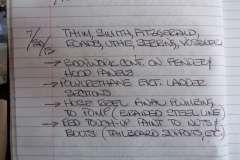 7/30/13
THIM, SMITH, FITZGERALD,
ROADS, UTHE, SEERING, VOSSBERG
→ BODYWORK CONT. ON FENDER/
HOOD PANELS
→ POLYURETHANE EXT. LADDER
SECTIONS
→ HOSE REEL FINAL PLUMBING
TO PUMP (BRAIDED STEEL LINE)
→ RED TOUCH-UP PAINT TO NUTS/
BOLTS (TAILBOARD SUPPORTS, ETC.)